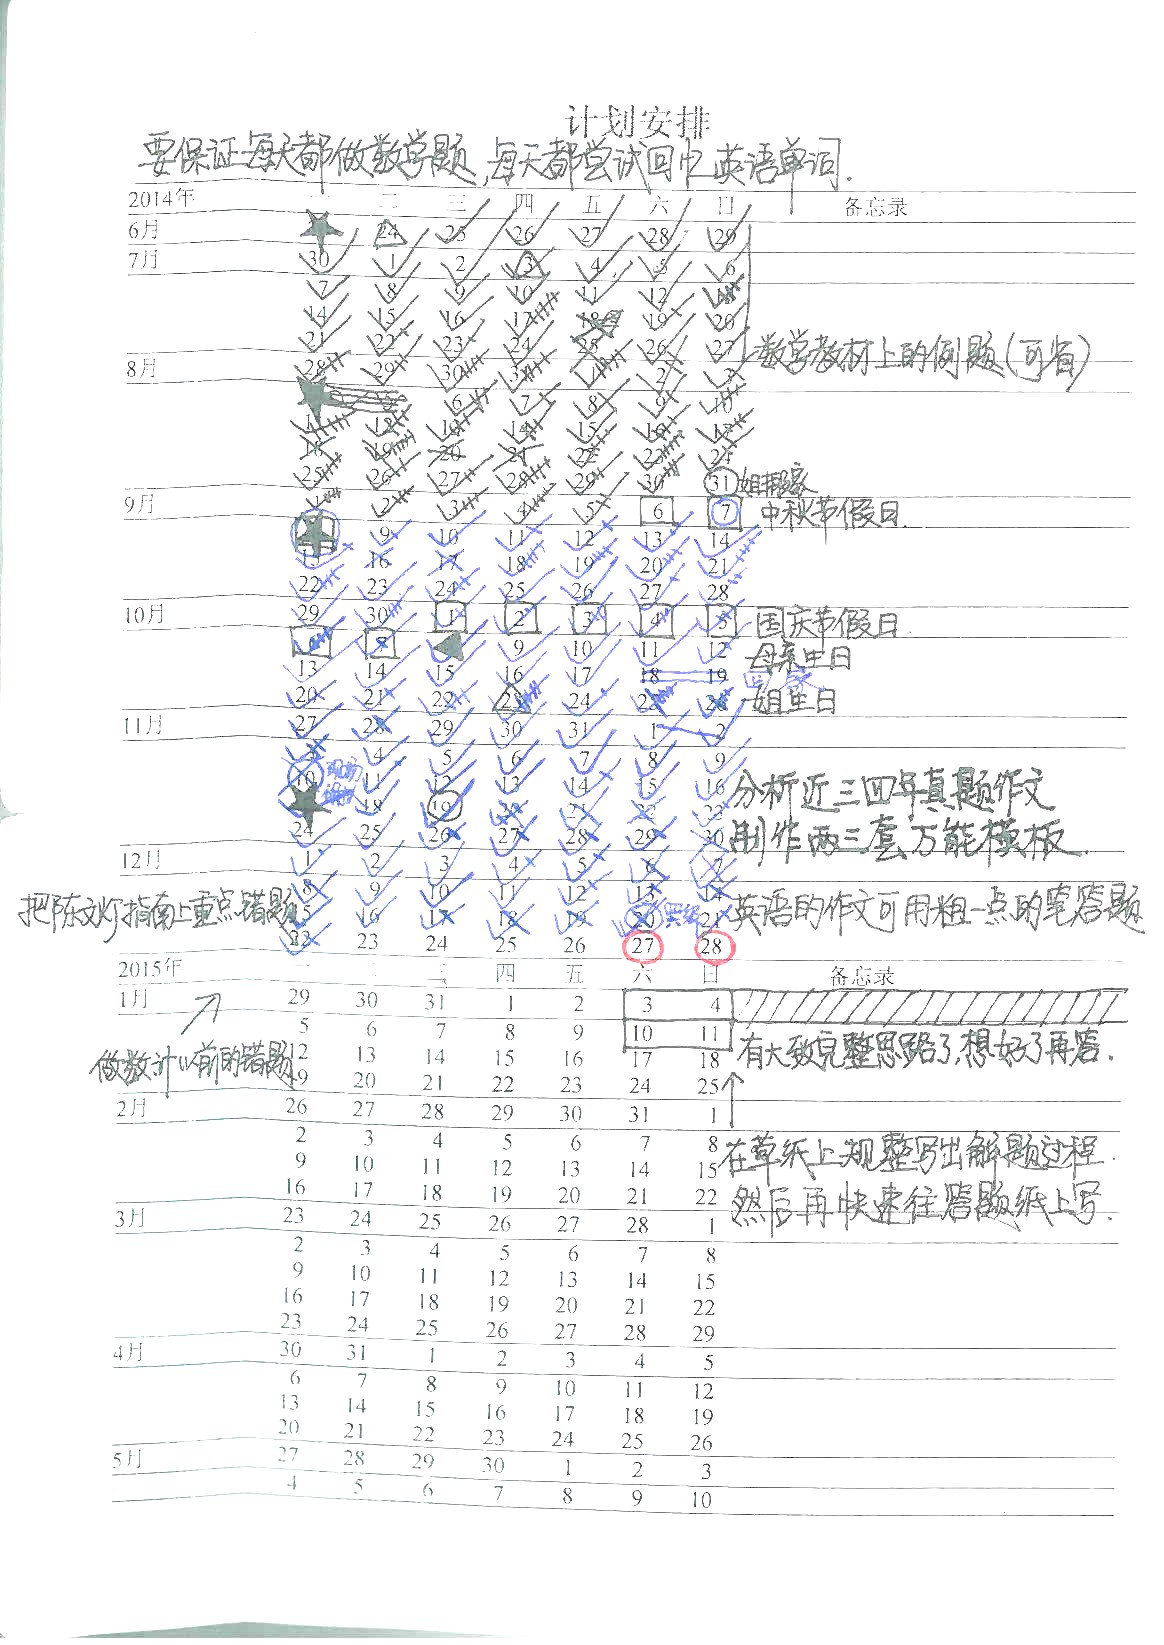 计划安排
要保证每天都做数学题,每天都尝试回忆英语单词.
2014年 二 三 四 五 六 日 备忘录
6月 24 25 26 27 28 29
7月 30 1 2 3 4 5 6
7 8 9 10 11 12
14 15 16 17 18 19 20
21 22 23 24 25 26 27
数学教材上的例题(可省)
8月 28 29 30 31 2 3
6 7 8 9 10
11 12 13 14 15 16 17
18 19 20 21 22 23 24
25 26 27 28 29 30 31
9月 1 2 3 4 5 6 7 中秋节假日
9 10 11 12 13 14
15 16 17 18 19 20 21
22 23 24 25 26 27 28
10月 29 30 1 2 3 4 5 国庆节假日
9 10 11 12 母亲生日
13 14 15 16 17 18 19
20 21 22 23 24 姐生日
11月 27 28 29 30 31 1 2
4 5 6 7 8 9
10 11 12 13 14 15 16
分析近三四年真题作文
18 19 21 22
24 25 26 27 28 29 30
制作两三套万能模板.
12月 1 2 3 4 5 6 7
8 9 10 11 12 13 14
把陈文灯指南上重点错题
15 16 17 18 19 20 21 英语的作文可用粗一点的笔答题
22 23 24 25 26 27 28
2015年 二 三 四 五 六 日 备忘录
1月 29 30 31 1 2 3 4
5 6 7 8 9 10 11
有大致完整思路了,想好了再答.
做数计以前的错题
12 13 14 15 16 17 18
19 20 21 22 23 24 25
2月 26 27 28 29 30 31 1
2 3 4 5 6 7 8
在草纸上规整写出解题过程.
9 10 11 12 13 14 15
16 17 18 19 20 21 22
然后再快速往答题纸上写.
3月 23 24 25 26 27 28 1
2 3 4 5 6 7 8
9 10 11 12 13 14 15
16 17 18 19 20 21 22
23 24 25 26 27 28 29
4月 30 31 1 2 3 4 5
6 7 8 9 10 11 12
13 14 15 16 17 18 19
20 21 22 23 24 25 26
5月 27 28 29 30 1 2 3
4 5 6 7 8 9 10